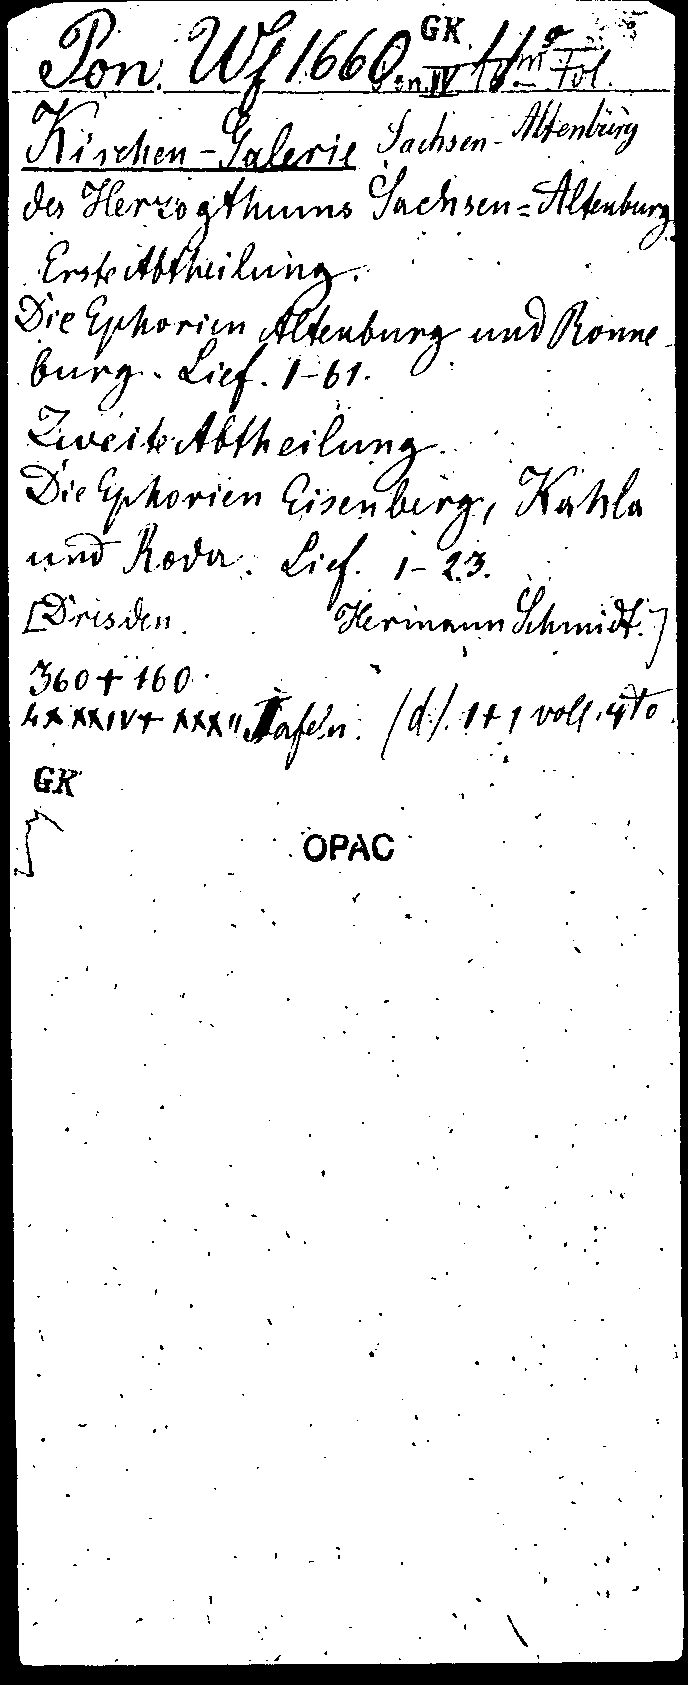 Pon. Wf 1660 GK
Kirchen-Galerie Sachsen-Altenburg
des Herzogthums Sachsen=Altenburg.
Erste Abtheilung.
Die Ephorien Altenburg und Ronne-
burg. Lief. 1-61.
Zweite Abtheilung.
Die Ephorien Eisenberg, Kahla
und Roda. Lief. 1-23.
[Dresden. Hermann Schmidt.]
360 + 160
Tafeln. (d.). 1+1 voll. 4to.
GK
OPAC